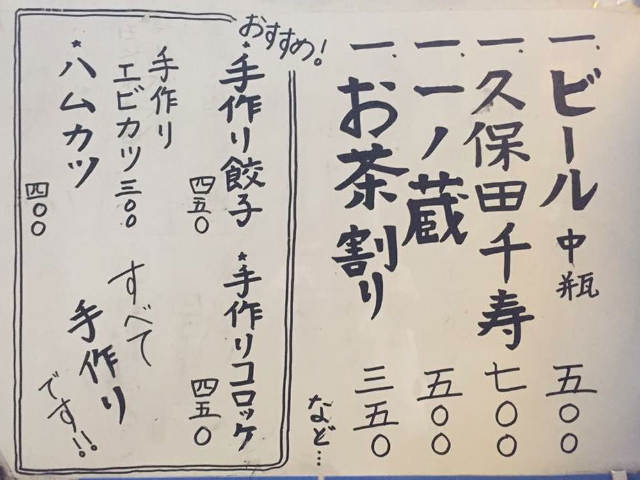 一、ビール中瓶 五〇〇
一、久保田千寿 七〇〇
一、一ノ蔵 五〇〇
一、お茶割り 三五〇
など…
おすすめ!
*手作り餃子 四五〇
*手作りコロッケ 四五〇
手作り
エビカツ 三〇〇
*ハムカツ 四〇〇
すべて
手作り
です!!